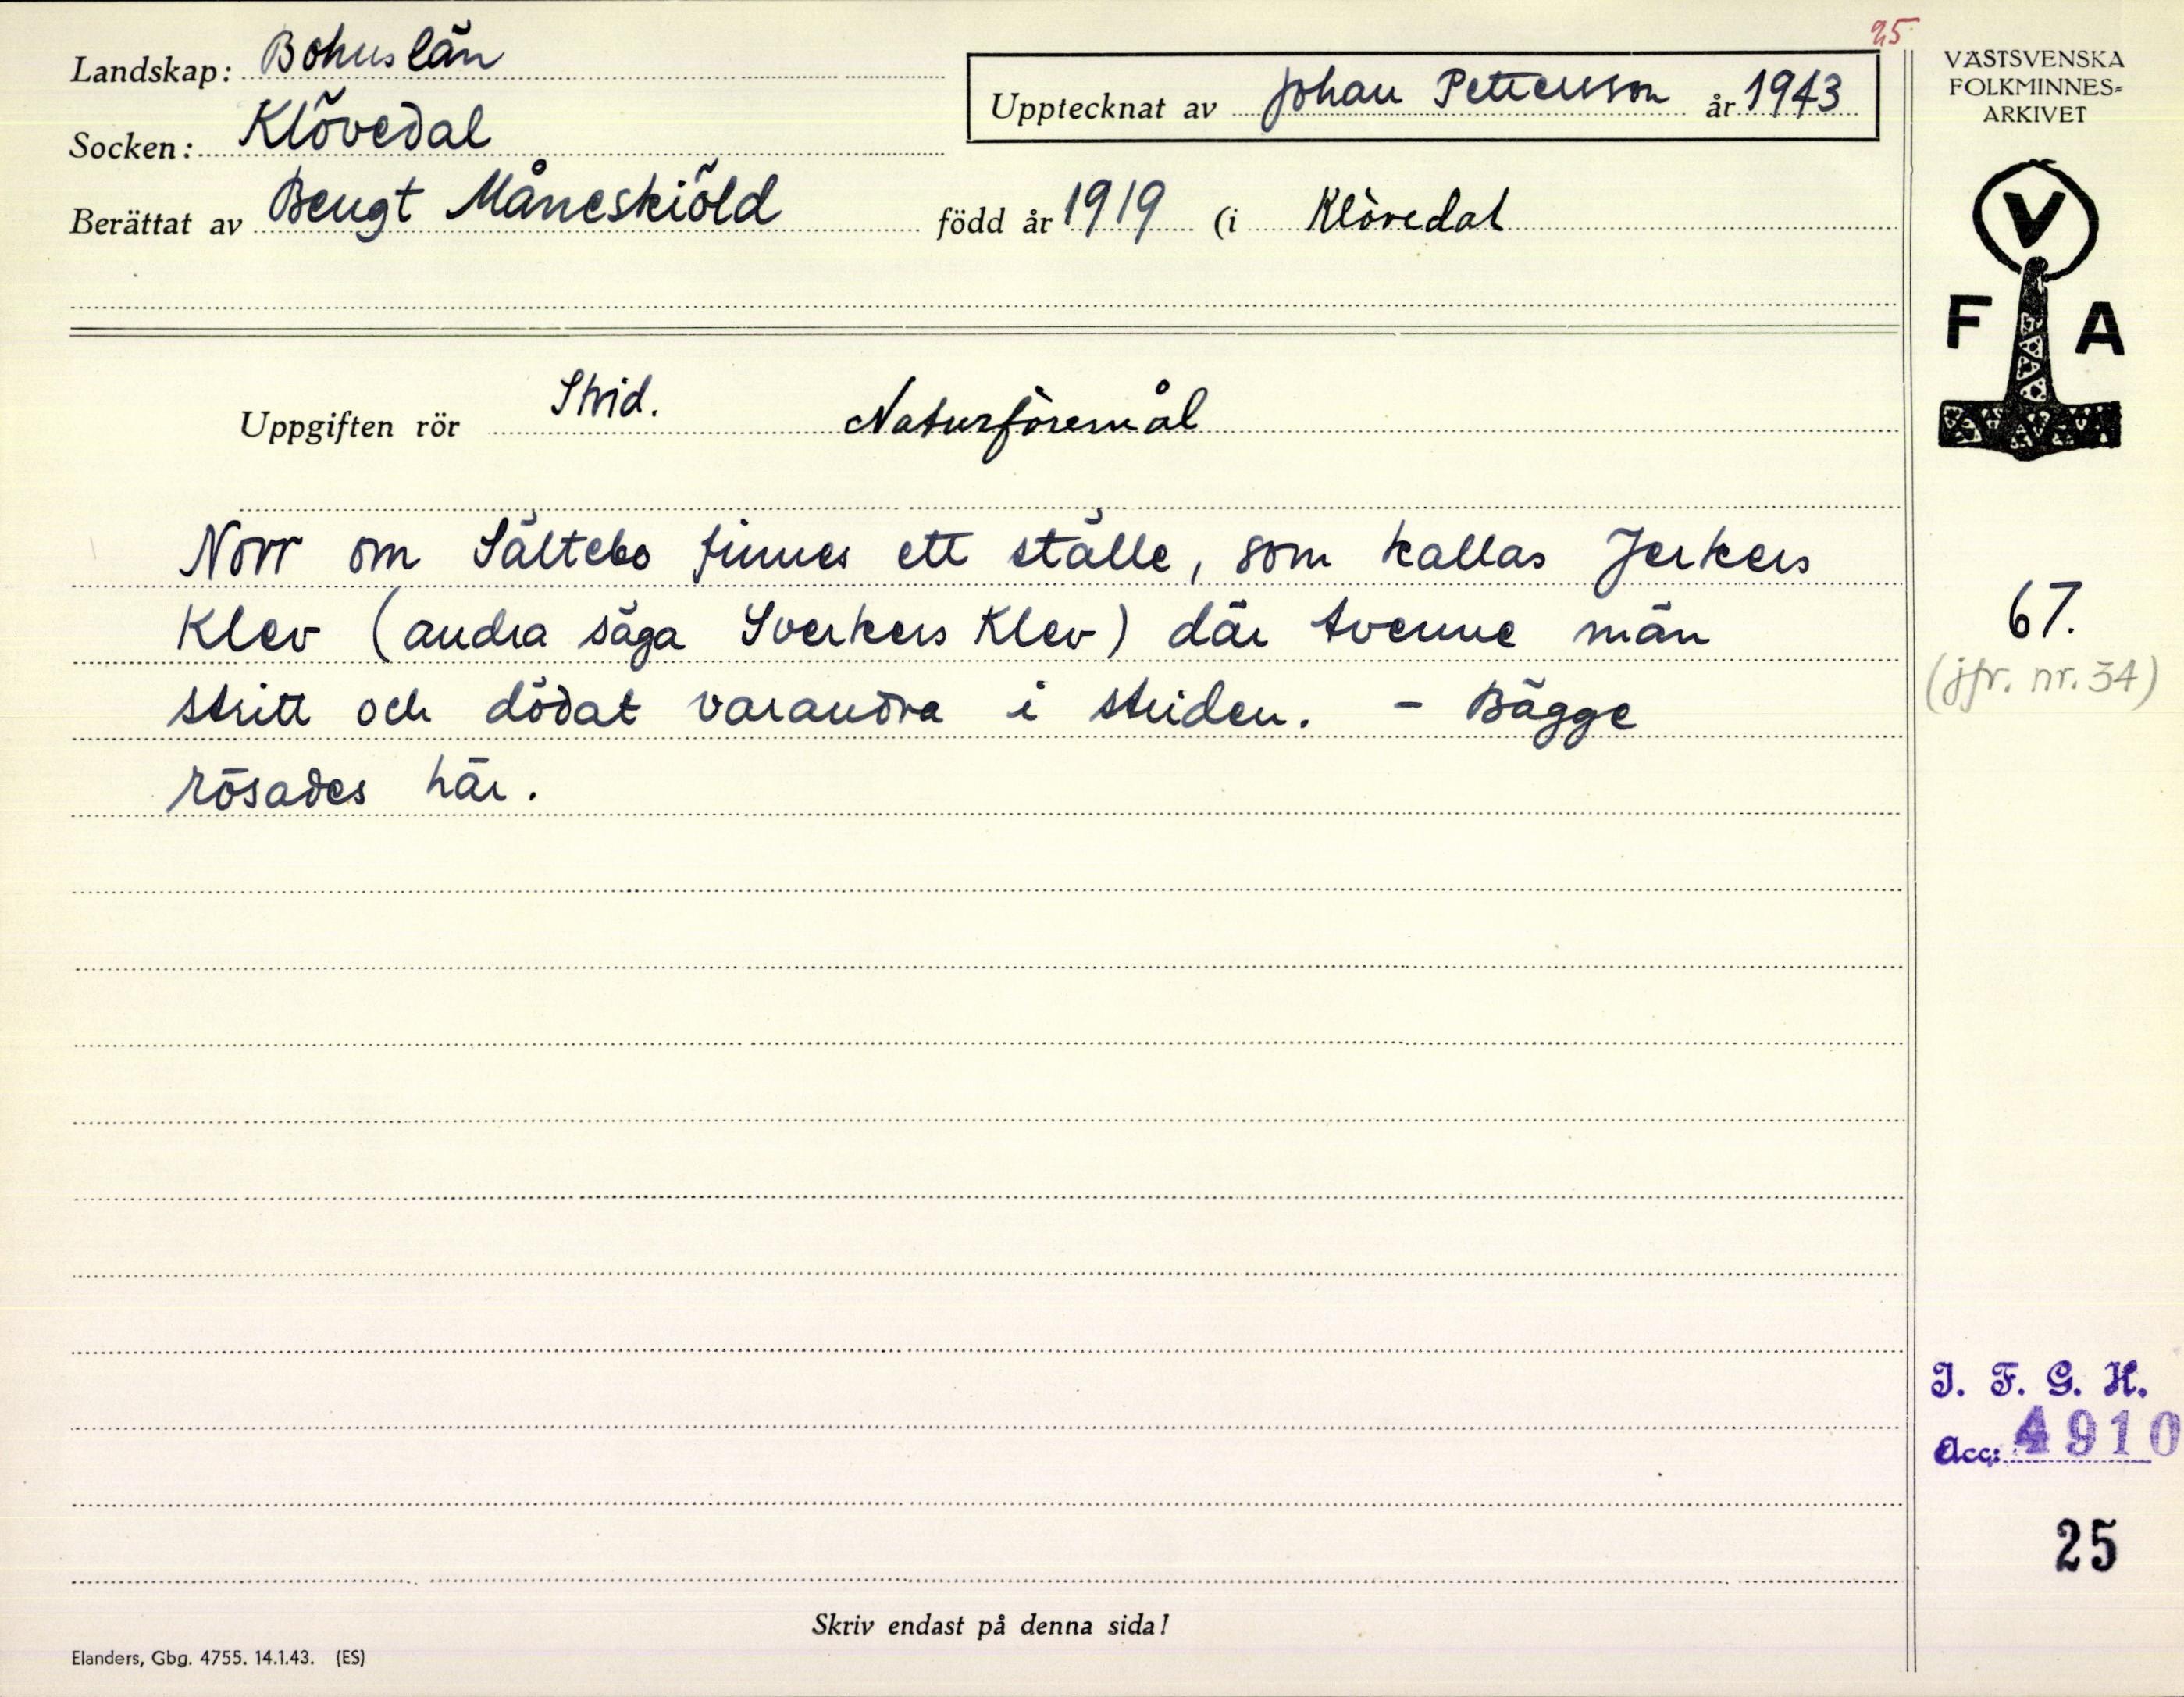 25
Landskap: Bohuslän
Upptecknat av Johan Pettersson år 1943
Socken: Klövedal
Berättat av Bengt Måneskiöld född år 1919 (i Klövedal
Uppgiften rör Strid. Naturföremål
Norr om Sältebo finnes ett ställe, som kallas Jerkers
Klev (andra säga Sverkers Klev) där tvenne män
stritt och dödat varandra i striden. - Bägge
rösades här.
Skriv endast på denna sida!
Elanders, Gbg. 4755. 14.1.43. (ES)
VÄSTSVENSKA
FOLKMINNES-
ARKIVET
V
F A
67.
(jfr. nr. 34)
I. F. G. H.
Acc: 4910
25